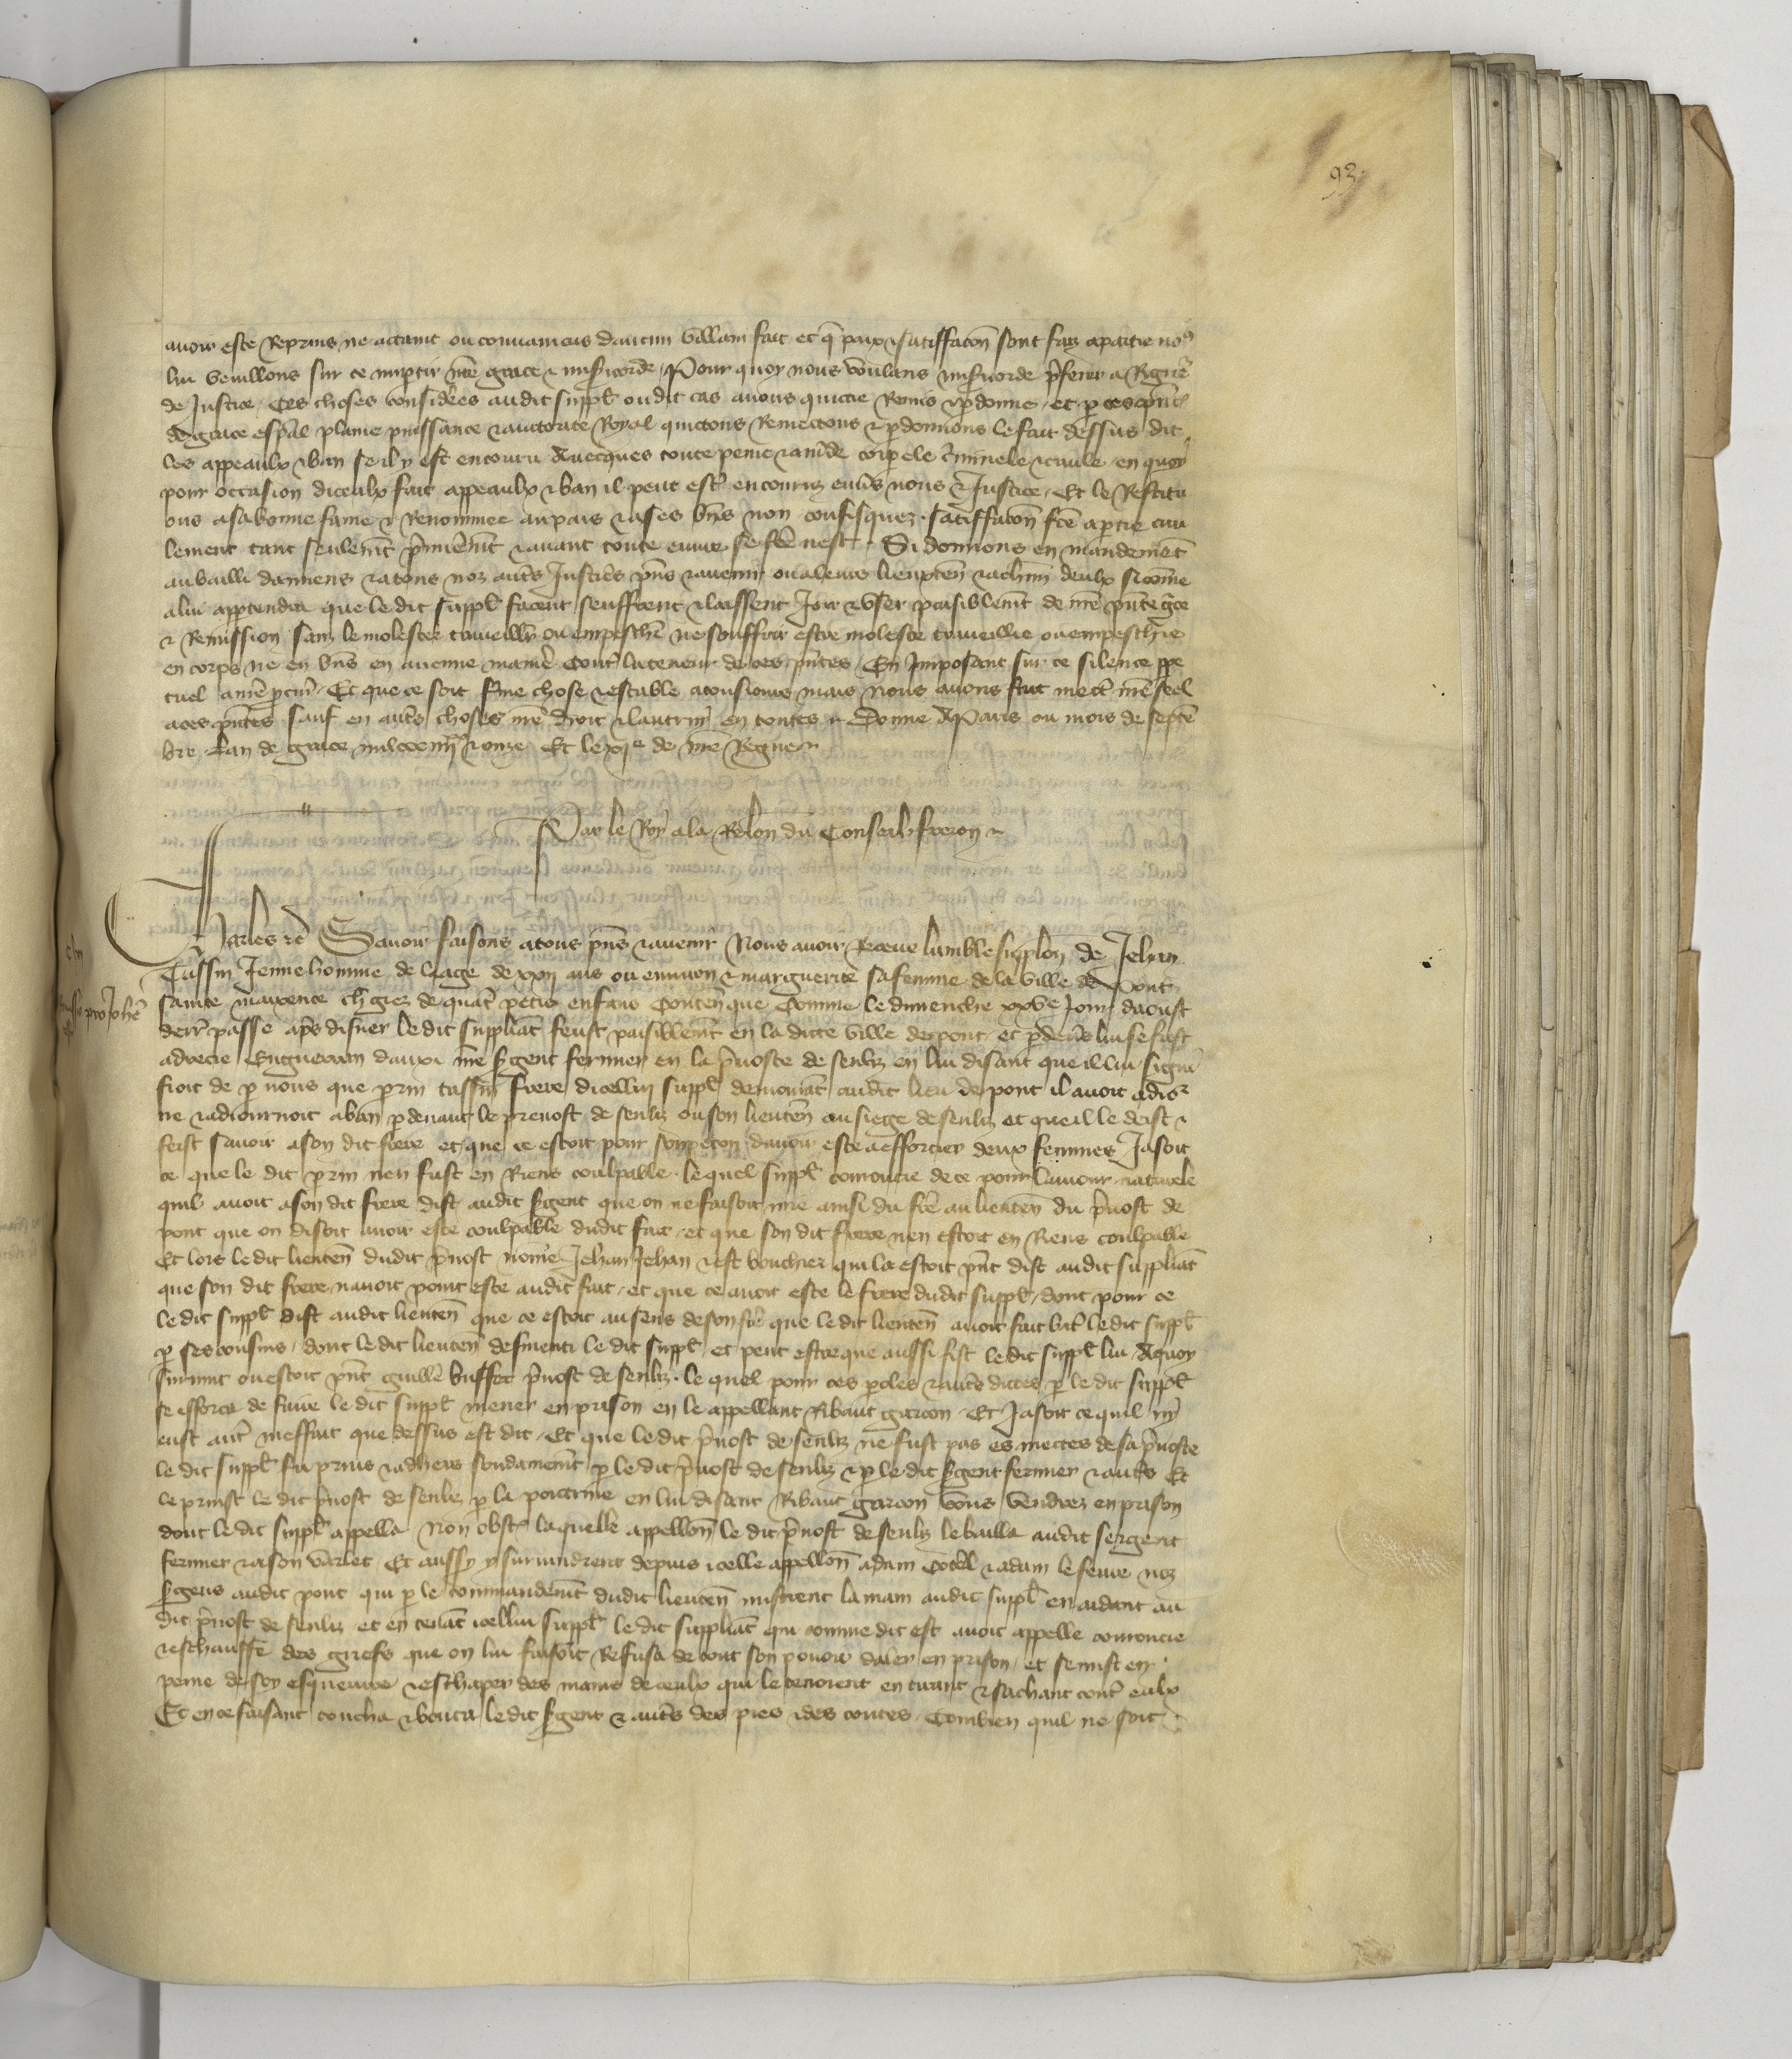 93
avoir este reprins ne attaint ou convaincus daucun villain fait et q̃ paix & satiffacõn sont faiz a partie no9
lui veuillons sur ce impartir nr̃e grace & misericorde / Pour quoy nous voulans misericorde p̃ferer a rigue᷑
de justice / Ces choses considerees audit suppl̃ ou dit cas avons quictie remis & p̱donne et p̱ ces p̃ntes
de grace esp̃al plaine puissance & auctorite royal quictons remectons & p̱donnons le fait dessus dit
les appeaulx & ban se il y est encouru avecques toute peine & am̃de corporele c̃minele & civile en quoy
pour occasion diceulx fait appeaulx & ban il peut est᷑ encouruz envs̃ nous & justice / Et le restitu
ons a sa bonne fame & renommee au pais & a ses bñs non confisquez satiffacõn fc̃e a p̱tie civi
lement tant seulem̃t p̃mierem̃t & avant toute euvre se fc̃e nest / Si donnons en mandemẽt
au bailli damiens & a tous noz aut̃s justic̃s p̃ns & avenir ou a leurs lieuxteñ & a chũn deulx si com̃e
a lui appartendra que le dit suppl̃ facent seuffrent & laissent joir & user paisiblem̃t de nr̃e p̃nte g̃ce
& remission sanz le molester traveillier ou empeschier ne souffrir estre moleste traveillie ou empeschie
en corps ne en bñs en aucune maniere cont᷑ la teneur de ces p̃ntes / En imposant sur ce silence ppe
tuel a nr̃e pcur̃ / Et que ce soit ferme chose & estable a tousjours mais nous avons fait mectr̃ nr̃e seel
a ces p̃ntes sauf en aut̃s choses nr̃e droit & lautruy en toutes / Donne a Paris ou mois de septẽ
bre lan de grace mil ccc iiii xx & onze / Et le xie de nr̃e regne
Par le roy a la relõn du conseil / Freron
Charles &c̃ Savoir faisons a tous p̃ns & avenir Nous avoir receue lumble suplõn de Jehan
Cassin jeune homme de laage de xxii ans ou environ & Marguerite sa femme de la ville de Pont
Sainte Maixence ch̃giez de quat᷑ petis enfans conteñ que comme le dimenche xxve jour daoust
derr̃ passe ap̃s disner le dit suppliãt feust paisiblem̃t en la dicte ville de Pont et p̱devs̃ lui se fust
adrecie Enguerran dauxi nr̃e s̱gent fermier en la p̃voste de Senliz en lui disant que il lui signi
fioit de p̱ nous que p̱rin Cassin frere dicellui suppl̃ demourãt audit lieu de Pont il avoit adio2
ne & adiournoit a ban p̱devant le prevost de Senliz ou son lieuteñ au siege de Senliz et que il le deist &
feist savoir a son dit frere et que ce estoit pour soupecon davoir este a efforcier deux femmes Jasoit
ce que le dit p̱rin nen fust en riens coulpable le quel suppl̃ courroucie de ce pour lamour naturele
quil avoit a son dit frere dist audit s̱gent que on ne faisoit mie ainsi du fr̃e au lieuteñ du p̃vost de
Pont que on disoit avoir este coulpable dudit fait et que son dit frere nen estoit en riens coulpable
Et lors le dit lieuteñ dudit p̃vost nom̃e Jehan Jehan & est bouchier qui la estoit p̃nt dist audit suppliãt
que son dit frere navoit point este audit fait et que ce avoit este le frere dudit suppl̃ / dont pour ce
le dit suppl̃ dist audit lieuteñ que ce estoit au sens de son fr̃e que le dit lieuteñ avoit fait bat᷑ le dit suppl̃
p̱ ses cousins / dont le dit lieuteñ desmenti le dit suppl̃ et peut estre que aussi fist le dit suppl̃ lui A quoy
survint ou estoit p̃nt Guille᷑ Buffet p̃vost de Senliz le quel pour ces p̱oles & aut̃s dictes p̱ le dit suppl̃
se efforca de faire le dit suppl̃ mener en prison en le appellant ribaut garcon Et jasoit ce quil ny
eust aut᷑ meffait que dessus est dit / Et que le dit p̃vost de Senliz ne fust pas es mectes de sa p̃voste
le dit suppl̃ fu prins & adhers soudainem̃t p̱ le dit p̃vost de Senliz & p̱ le dit s̱gent fermier & aut̃s Et
le prinst le dit p̃vost de Senliz p̱ la poictrine en lui disant Ribaut garcon vous vendrez en prison
dont le dit suppl̃ appella Non obst̃ laquelle appellõn le dit p̃vost de Senliz le bailla audit sergent
fermier & a son varlet Et aussy y survindrent depuis icelle appellõn Adam Cotel & Adam le Feure noz
s̱gens audit Pont qui p̱ le commandem̃t dudit lieuteñ mistrent la main audit suppl̃ en aidant au
dit p̃vost de Senliz et en tenãt icellui suppl̃ le dit suppliãt qui comme dit est avoit appelle courroucie
& eschauffe des griefs que on lui faisoit refusa de tout son povoir daler en prison et se mist en
peine de soy esquevre & eschaper des mains de ceulx qui le tenoient en tirant & sachant cont᷑ eulx
Et en ce faisant toucha & bouta le dit s̱gent & aut̃s des pies & des coutes Combien quil ne soit